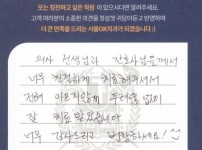 또는 칭찬하고 싶은 직원이 있으시다면 알려주세요.
고객 여러분의 소중한 의견을 정성껏 귀담아듣고 반영하여
더 큰 만족을 드리는 서울OK치과가 되겠습니다 :)
의사 선생님과 간호사님들께서
너무 친절하게 치료해주셔서
전혀 아프지않게 두려움 없이
잘 치료 받았습니다
너무 감사드리고 번창하세요!